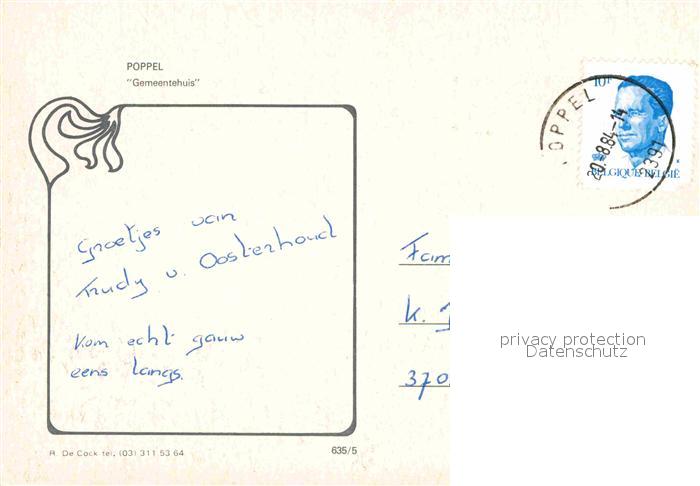 POPPEL
"Gemeentehuis"
10F
POPPEL
20.-8.84-14
2391
BELGIQUE-BELGIË
Groetjes van
Trudy v. Oosterhoud
Kom echt gauw
eens langs.
Fam
K. J
370
privacy protection
Datenschutz
R. De Cock tel. (03) 311 53 64
635/5